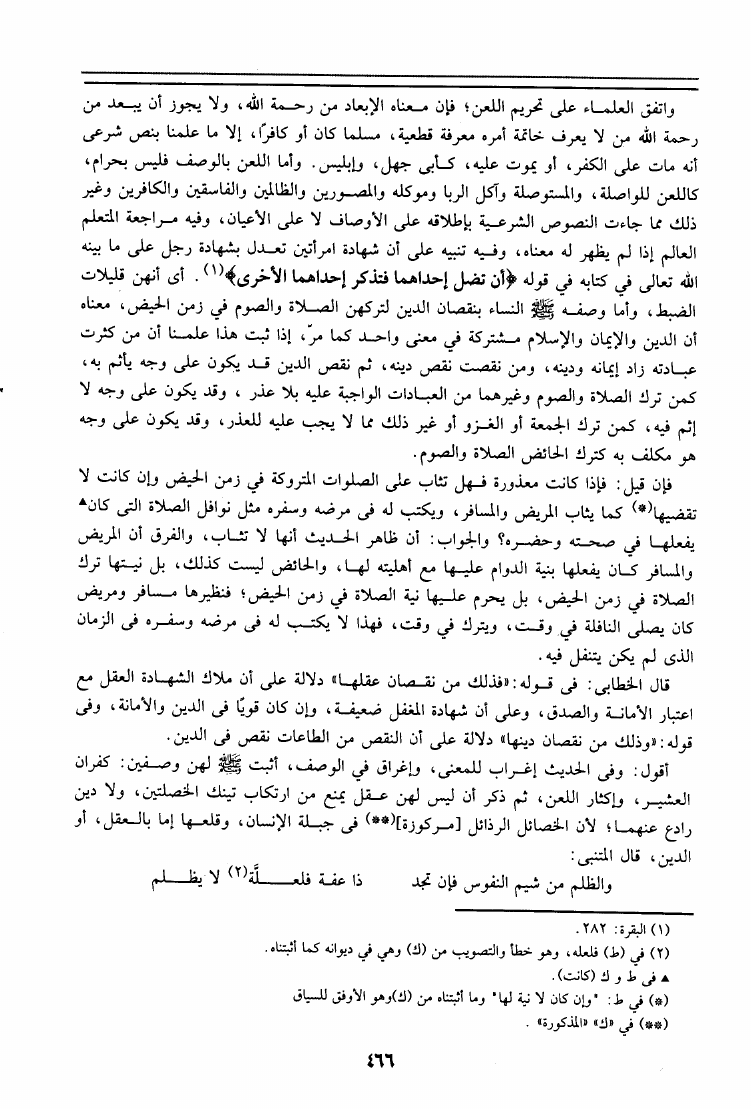 واتفق العلماء على تحريم اللعن؛ فإن معناه الإبعاد من رحمة الله، ولا يجوز أن يبعد من
رحمة الله من لا يعرف خاتمة أمره معرفة قطعية، مسلما كان أو كافرًا، إلا ما علمنا بنص شرعى
أنه مات على الكفر، أو يموت عليه، كأبي جهل، وإبليس. وأما اللعن بالوصف فليس بحرام،
كاللعن للواصلة، والمستوصلة وآكل الربا وموكله والمصورين والظالمين والفاسقين والكافرين وغير
ذلك مما جاءت النصوص الشرعية بإطلاقه على الأوصاف لا على الأعيان، وفيه مراجعة المتعلم
العالم إذا لم يظهر له معناه، وفيه تنبيه على أن شهادة امرأتين تعدل بشهادة رجل على ما بينه
الله تعالى في كتابه في قوله ﴿أن تضل إحداهما فتذكر إحداهما الأخرى﴾(١). أى أنهن قليلات
الضبط، وأما وصفه ﷺ النساء بنقصان الدين لتركهن الصلاة والصوم في زمن الحيض، معناه
أن الدين والإيمان والإسلام مشتركة في معنى واحد كما مرّ، إذا ثبت هذا علمنا أن من كثرت
عبادته زاد إيمانه ودينه، ومن نقصت نقص دينه، ثم نقص الدين قد يكون على وجه يأثم به،
كمن ترك الصلاة والصوم وغيرهما من العبادات الواجبة عليه بلا عذر ، وقد يكون على وجه لا
إثم فيه، كمن ترك الجمعة أو الغزو أو غير ذلك مما لا يجب عليه للعذر، وقد يكون على وجه
هو مكلف به كترك الحائض الصلاة والصوم.
فإن قيل: فإذا كانت معذورة فهل تثاب على الصلوات المتروكة في زمن الحيض وإن كانت لا
تقضيها(*) كما يثاب المريض والمسافر، ويكتب له فى مرضه وسفره مثل نوافل الصلاة التى كان▲
يفعلها في صحته وحضره؟ والجواب: أن ظاهر الحديث أنها لا تثاب، والفرق أن المريض
والمسافر كان يفعلها بنية الدوام عليها مع أهليته لها، والحائض ليست كذلك، بل نيتها ترك
الصلاة في زمن الحيض، بل يحرم عليها نية الصلاة في زمن الحيض؛ فنظيرها مسافر ومريض
كان يصلى النافلة في وقت، ويترك في وقت، فهذا لا يكتب له فى مرضه وسفره فى الزمان
الذى لم يكن يتنفل فيه.
قال الخطابي: فى قوله:«فذلك من نقصان عقلها» دلالة على أن ملاك الشهادة العقل مع
اعتبار الأمانة والصدق، وعلى أن شهادة المغفل ضعيفة، وإن كان قويًا فى الدين والأمانة، وفى
قوله:«وذلك من نقصان دينها» دلالة على أن النقص من الطاعات نقص فى الدين.
أقول: وفى الحديث إغراب للمعنى، وإغراق في الوصف، أثبت ﷺ لهن وصفين: كفران
العشير، وإكثار اللعن، ثم ذكر أن ليس لهن عقل يمنع من ارتكاب تينك الخصلتين، ولا دين
رادع عنهما؛ لأن الخصائل الرذائل [مركوزة](**) فى جبلة الإنسان، وقلعها إما بالعقل، أو
الدين، قال المتنبى:
والظلم من شيم النفوس فإن تجد ذا عفة فلعلَّة(٢) لا يظلم
(١) البقرة: ٢٨٢.
(٢) في (ط) فلعله، وهو خطأ والتصويب من (ك) وهي في ديوانه كما أثبتناه.
▲ فى ط و ك (كانت).
(*) في ط: "وإن كان لا نية لها" وما أثبتناه من (ك)وهو الأوفق للسياق
(**) في «ك» «المذكورة» .
٤٦٦